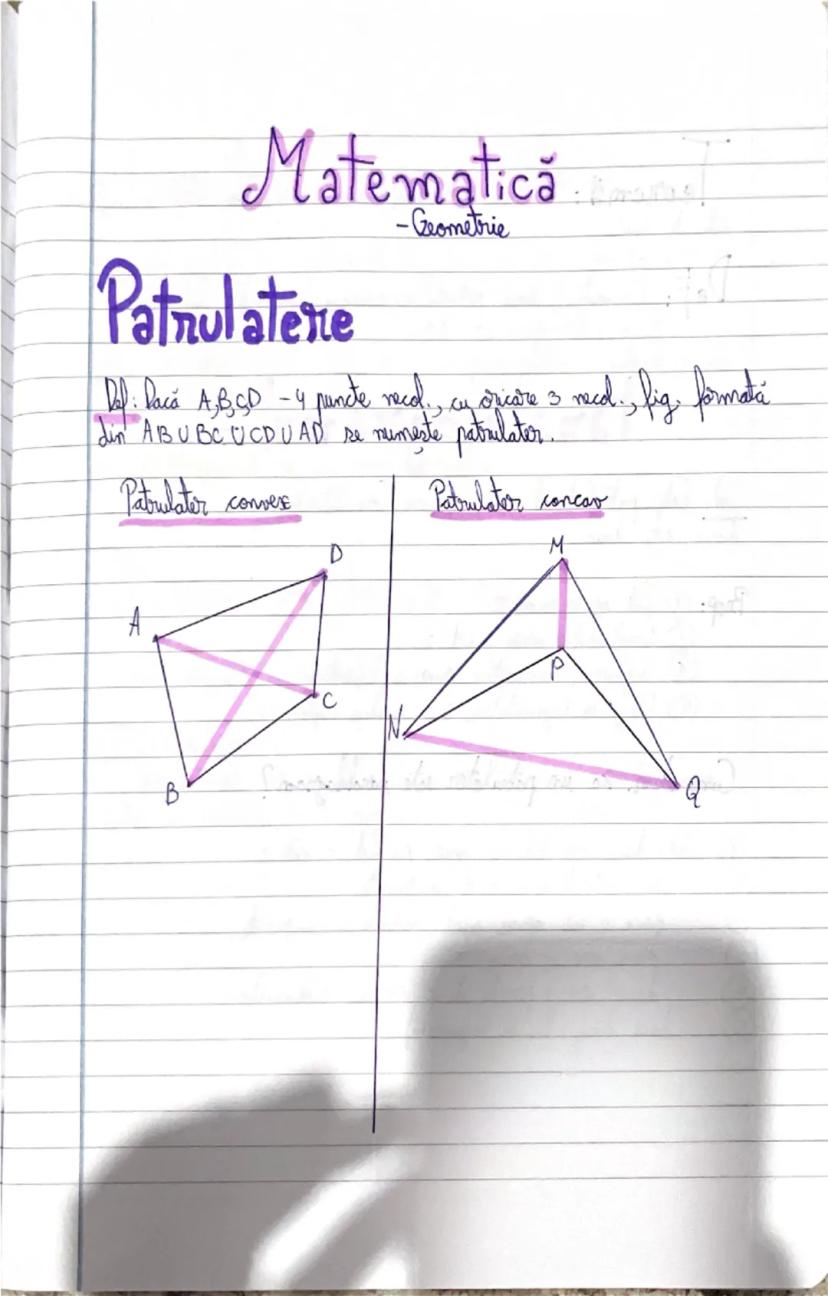 Matematică
-Geometrie
Patrulatere
Def: Dacă A,B,C,D - 4 puncte necol., cu oricare 3 necol., fig. formată
din AB∪BC∪CD∪AD se numește patrulater.
Patrulater convex
Patrulater concav
D
A
C
B
M
P
N
Q